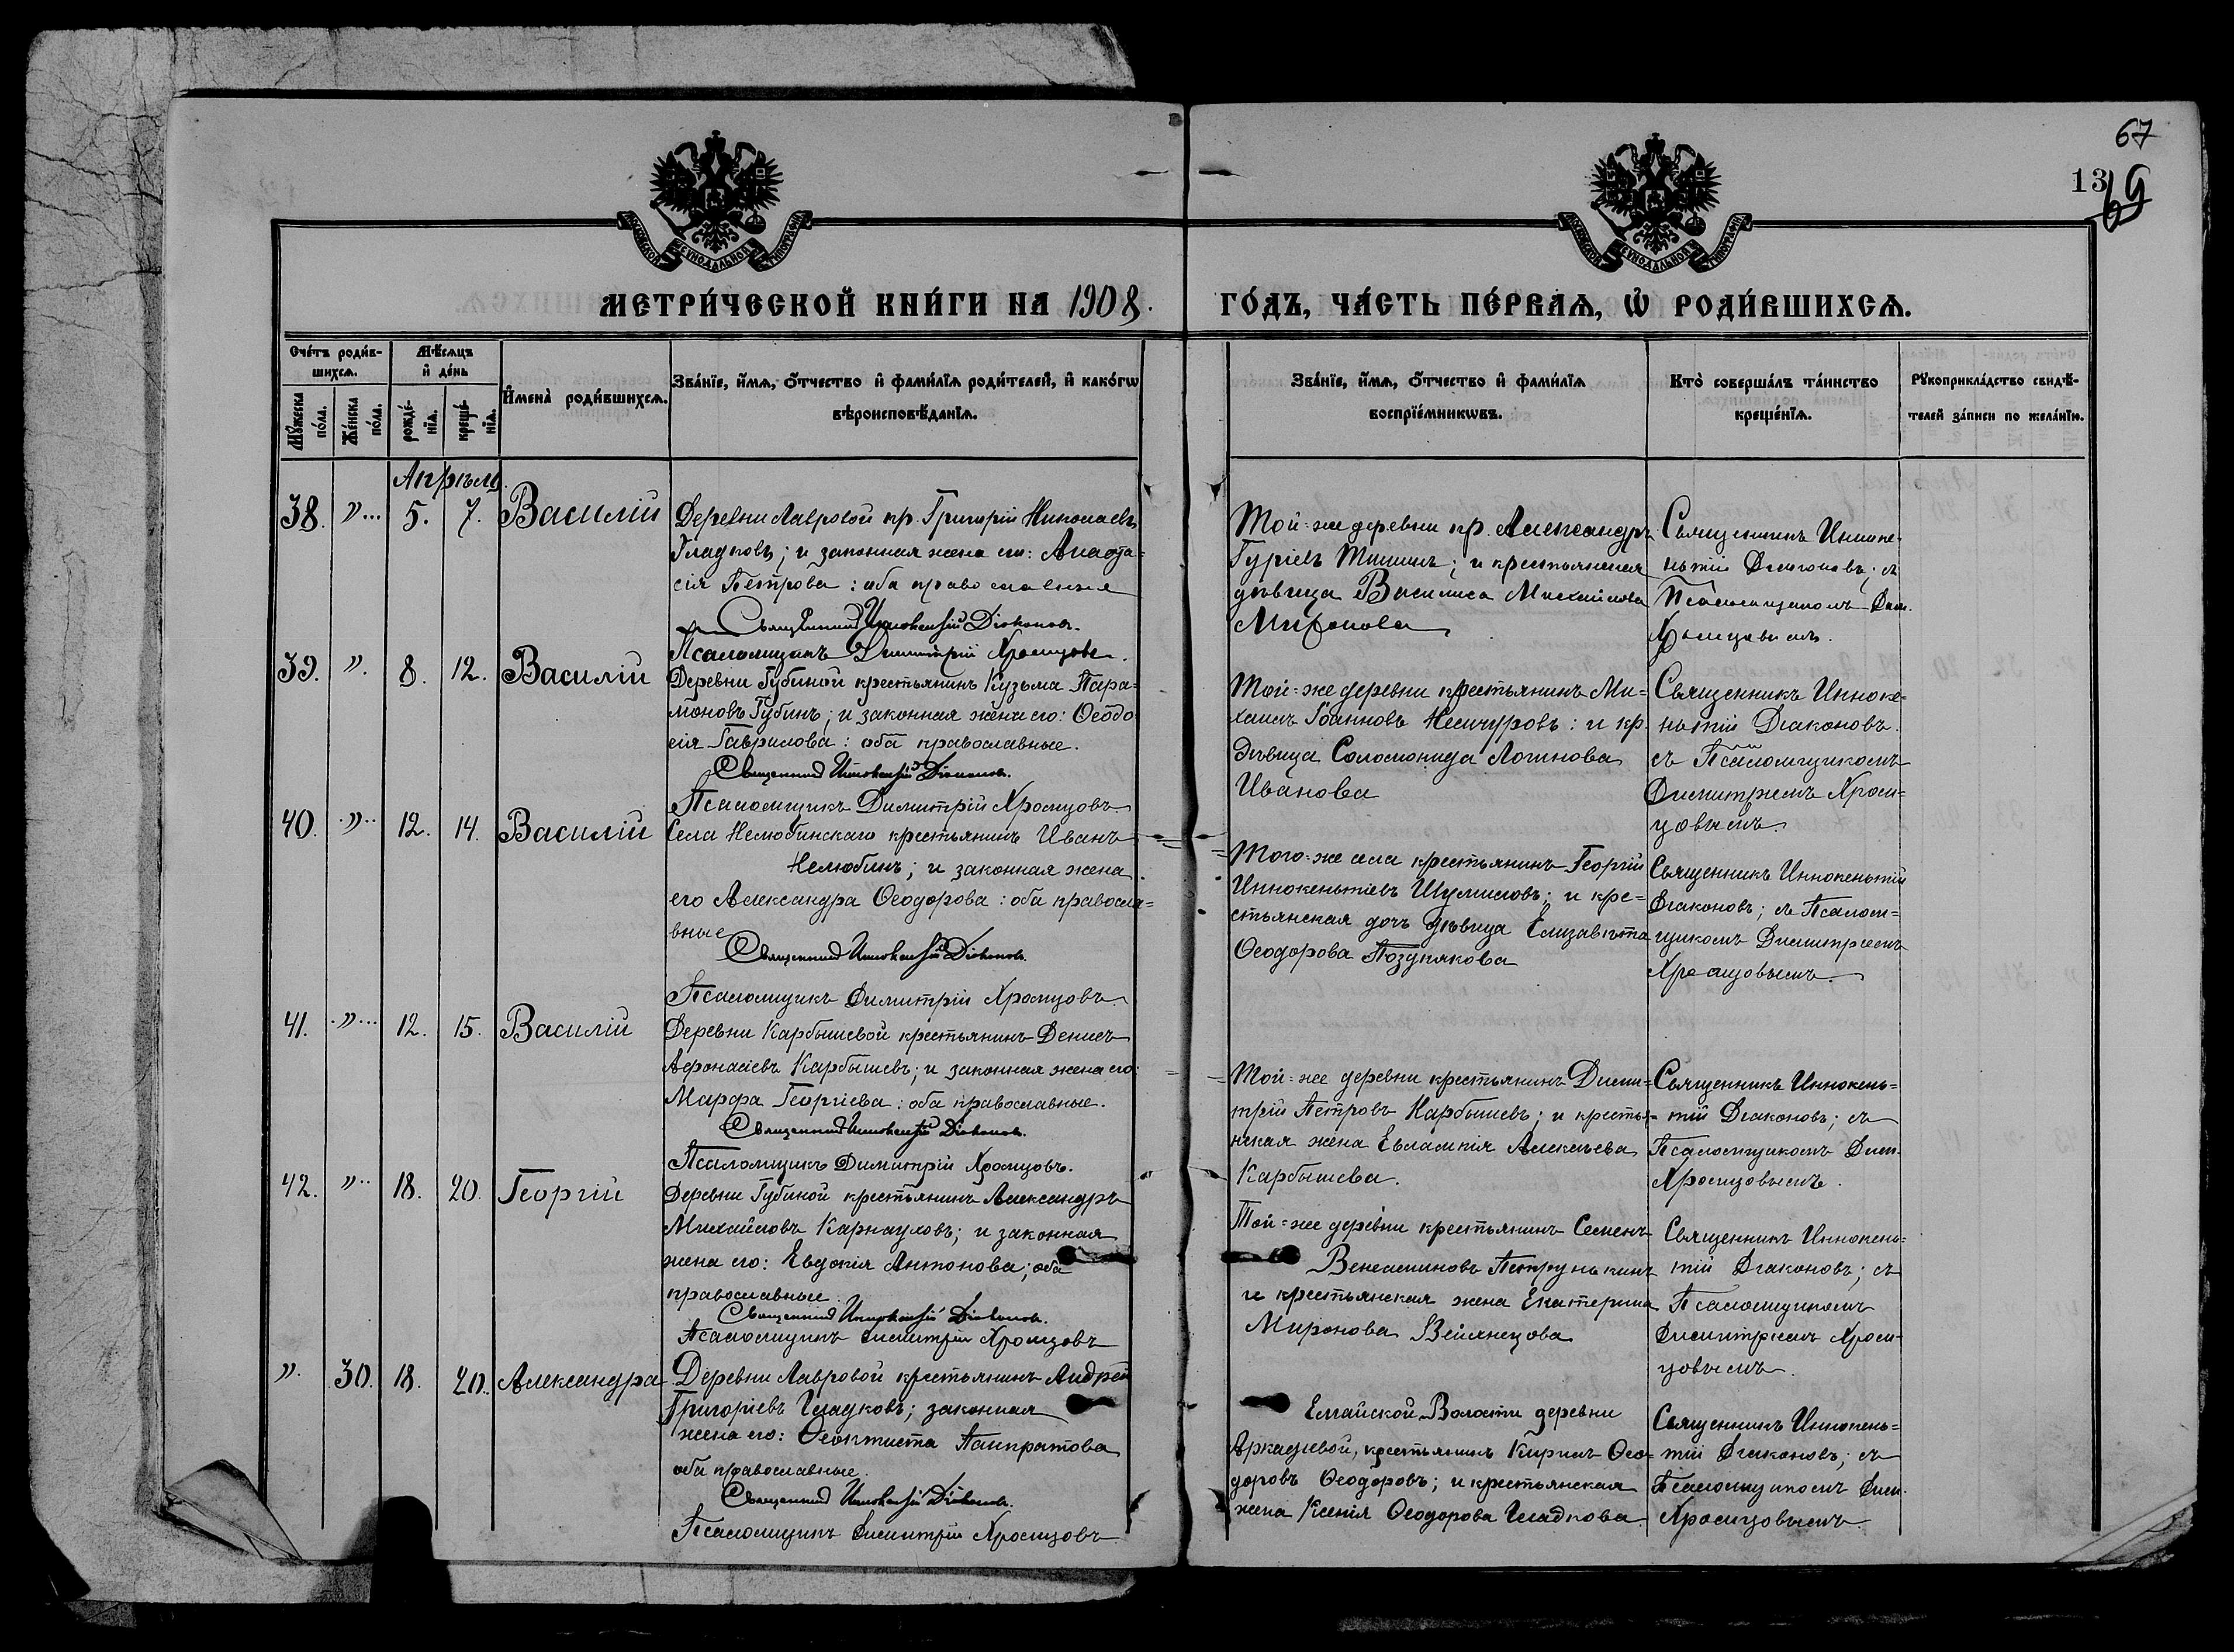 67
13
69
МОСКОВСКОЙ СѴНОДАЛЬНОЙ ТИПОГРАФІИ
МОСКОВСКОЙ СѴНОДАЛЬНОЙ ТИПОГРАФІИ
МЕТРИ́ЧЕСКОЙ КНИ́ГИ НА 1908.
ГО́ДЪ, ЧА́СТЬ ПЕ́РВАѦ, Ѡ҆ РОДИ́ВШИХСѦ.
Сче́тъ роди́в-
шихсѧ.
Мѣ́сѧцъ
и҆ де́нь
Мꙋ́жеска по́ла.
Же́нска по́ла.
рожде́-
нїѧ.
креще́-
нїѧ.
И҆мена̀ роди́вшихсѧ.
Зва́нїе, и҆́мѧ, ѻ҆́тчество и҆ фами́лїѧ роди́телей, и҆ како́гѡ
вѣроисповѣ́данїѧ.
Зва́нїе, и҆́мѧ, ѻ҆́тчество и҆ фами́лїѧ
воспрїе́мникѡвъ.
Кто̀ соверша́лъ та́инство
креще́нїѧ.
Рꙋкоприкла́дство свидѣ́-
телей за́писи по жела́нїю.
Апрѣль.
38. "... 5. 7. Василій
Деревни Лавровой кр. Григорій Николаевъ
Гладковъ; и законная жена его: Анаста=
сія Петрова: оба православные
Священникъ Иннокентій Діаконовъ.
Псаломщикъ Димитрій Хромцовъ.
Той=же деревни кр. Александръ
Гуріевъ Тишинъ; и крестьянская
дѣвица Василиса Михайлова
Миронова
Священникъ Иннокен-
ньтій Діаконовъ; съ
Псаломщикомъ Дим.
Хромцовымъ.
39. ". 8. 12. Василій
Деревни Губиной крестьянинъ Кузьма Пара=
моновъ Губинъ; и законная жена его: Ѳеодо
сія Гаврилова: оба православные.
Священникъ Иннокентій Діаконовъ.
Псаломщикъ Димитрій Хромцовъ
Той=же деревни крестьянинъ Ми=
хаилъ Іоанновъ Нечуровъ: и кр.
дѣвица Соломонида Логинова
Иванова
Священникъ Инноке=
ньтій Діаконовъ.
съ Псаломщикомъ
Димитріемъ Хром=
цовымъ.
40. ".. 12. 14. Василій
Села Нелюбинскаго крестьянинъ Иванъ
Нелюбинъ; и законная жена
его Александра Ѳеодорова: оба правосла=
вные
Священникъ Иннокентій Діаконовъ.
Псаломщикъ Димитрій Хромцовъ.
Того=же села крестьянинъ Георгій
Иннокеньтіевъ Шумиловъ; и кре=
стьянская дочь дѣвица Елизавѣта
Ѳеодорова Позднякова
Священникъ Иннокеньтій
Діаконовъ; съ Псалом=
щикомъ Димитріемъ
Хромцовымъ.
41. "... 12. 15. Василій
Деревни Карбышевой крестьянинъ Денисъ
Афонасіевъ Карбышевъ; и законная жена его
Марфа Георгіева: оба православные.
Священникъ Иннокентій Діаконовъ.
Псаломщикъ Димитрій Хромцовъ.
Той=же деревни крестьянинъ Дими=
трій Петровъ Карбышевъ; и крестья=
нская жена Евлампія Алексѣева
Карбышева.
Священникъ Иннокень=
тій Діаконовъ; съ
Псаломщикомъ Дим.
Хромцовымъ.
42. ".. 18. 20. Георгій
Деревни Губиной крестьянинъ Александръ
Михайловъ Карнауховъ; и законная
жена его: Евдокія Антонова; оба
православные.
Священникъ Иннокентій Діаконовъ.
Псаломщикъ Димитрій Хромцовъ
Той=же деревни крестьянинъ Семенъ
Веніаминовъ Петрунькинъ
и крестьянская жена Екатерина
Миронова
Священникъ Иннокень=
тій Діаконовъ; съ
Псаломщикомъ
Димитріемъ Хром=
цовымъ.
". 30. 18. 20. Александра
Деревни Лавровой крестьянинъ Андрей
Григоріевъ Гладковъ; законная
жена его: Ѳеоктиста Панкратова
оба православные.
Священникъ Иннокентій Діаконовъ.
Псаломщикъ Димитрій Хромцовъ.
Елгайской Волости деревни
Аркадіевой, крестьянинъ Кирилъ Ѳео=
доровъ Ѳеодоровъ; и крестьянская
жена Ксенія Ѳеодорова Гладкова.
Священникъ Иннокень=
тій Діаконовъ; съ
Псаломщикомъ Дим.
Хромцовымъ.